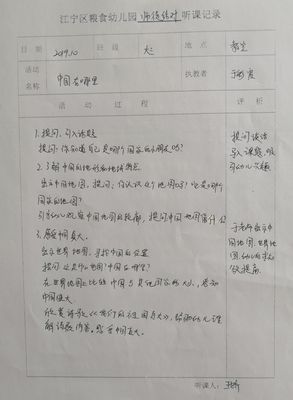 江宁区粮食幼儿园 师徒结对 听课记录
日期 2019.10 班级 大二 地点 教室
活动名称 中国在哪里 执教者
活动过程 评析
1. 提问, 引入话题
提问: 你知道自己是哪个国家的小朋友吗?
2. 了解中国的地形和地域特点
出示中国地图, 提问: 你认识这个地图吗? 它是哪个
国家的地图?
引导幼儿观察中国地图的轮廓, 提问中国地图像什么
3. 感受中国真大。
出示世界地图, 寻找中国的位置
提问: 这是什么地图? 中国在哪里?
在世界地图上比较中国与其他国家的大小, 感知
中国很大
欣赏诗歌《我们的祖国真大》, 帮助幼儿理
解诗歌内容, 感受中国真大。
提问谈话
导入课题, 吸
引幼儿兴趣
于老师出示中
国地图, 世界地
图, 幼儿的
提高
听课人: